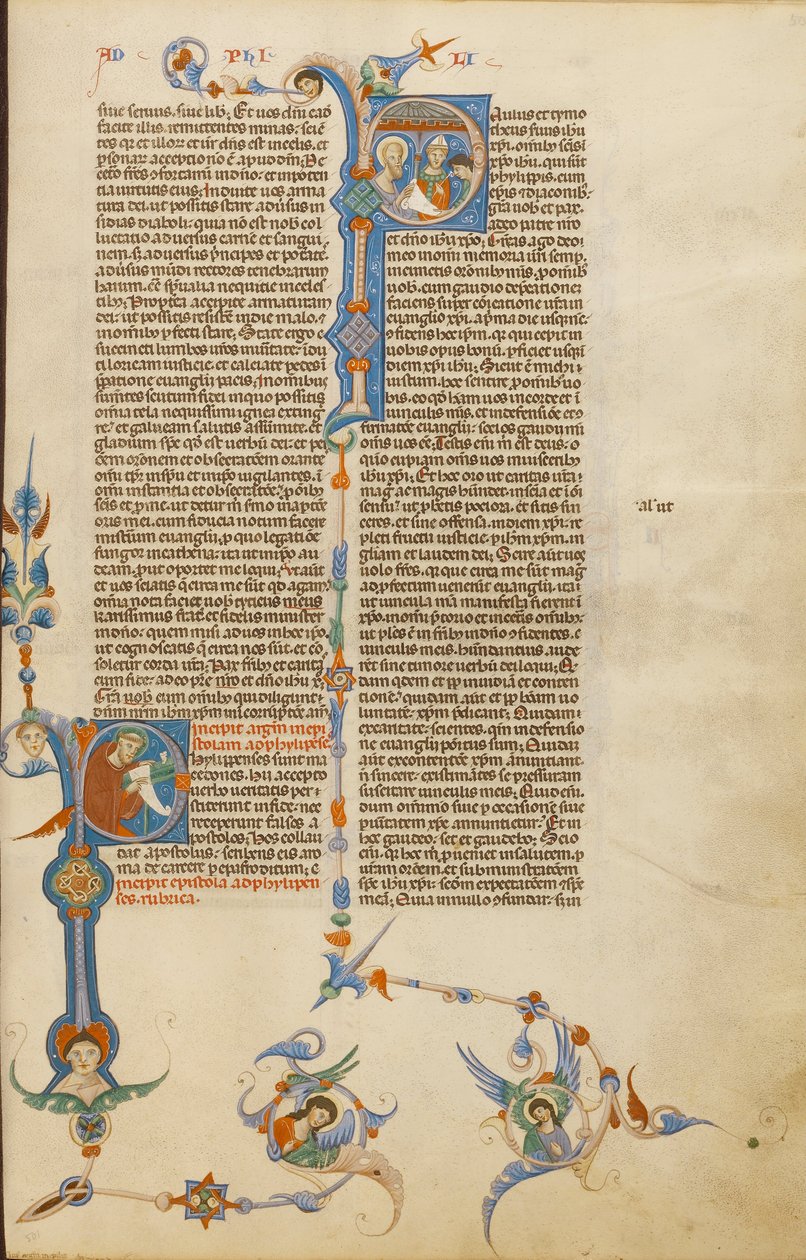 AD PHI LI
siue seruus. siue lib̄. Et uos dn̄i eađ
facite illis. remittentes minas. sciē
tes q̇ et illoꝝ et ur̄ dn̄s est in celis. et
ꝑsonaꝝ acceptio nō ē apud dm̄. De
cet̄o fr̄es ɔfortam̄i in dn̄o. et in poten
tia uirtutis eius. Induite uos arma
tura dei. ut possitis stare aduersus in
sidias diaboli. quia nō est nob̄ col
luctatio aduersus carnē et sangui
nem. s; aduersus p̄ncipes et potāte.
adūsus mūdi rectores tenebrarum
harum. cō sp̄ualia nequitie in celes
tib;. Propt̄ea accipite armaturam
dei. ut possitis resistē in die malo. ⁊
in omīb; ꝑfecti stare. State ergo
succincti lumbos uros in uītate. īdu
ti loricam iusticie. et calciate pedes ī
p̄patione euanglii pacis. In omībus
sumētes scutum fidei in quo possitis
om̄ia tela nequissimi ignea extinḡ
re. et galeam salutis assumite. et
gladium sp̄c qđ est uerbū dei. et ꝑ
om̄em or̄onem et obsecratōem orante
omī tp̄r in spū et in ip̄o uigilantes. ī
omī instantia et obsecratōe. ꝓ om̄ib
sc̄is et ꝓ me. ut detur m̄ sm̄o in aptōe
oris mei. cum fiducia notum facere
mist̄ium euanglii. ꝓ quo legatiōe
fungor in cathena. ita ut in ip̄o au
deam. ꝓut oportet me loqui. Ut aūt
et uos sciatis q̄ circa me sūt. qd agam.
om̄ia nota faciet uob̄ tyticus meus
karissimus frat̄. et fidelis minister
in dn̄o. quem misi ad uos in hoc ip̄o.
ut cognoscatis q̄ circa nos sūt. et cō
soletur corda ura. Pax fr̄ib; et carita
cum fide. a deo pr̄e nr̄o et dn̄o ihu x;.
Gr̄a uob̄ cum omīb; qui diligunt
dn̄m nr̄m ihm xp̄m in incorruptōe am̄.
Incipit argm̄ in epi
stolam ad phylipēse.
Phylipenses sunt ma
cedones. hii accepto
uerbo ueritatis per
stiterunt in fide. nec
receperunt falsos a
postolos. Hos collau
dat apostolus. scribens eis a ro
ma de carcere ꝑ epafroditum.
Incipit epistola ad phylipen
ses. rubrica.
Paulus et tymo
theus serui ihu
xp̄i. omīb; sc̄is ī
xp̄o ihu. qui sūt
phylippis. cum
ep̄is ⁊ diaconib;.
gr̄a uob̄ et pax.
a deo patre nr̄o
et dn̄o ihu xp̄o. Gr̄as ago deo
meo in omī memoria ur̄i semp.
in cunctis or̄onib; mīs. ꝓ omīb;
uob̄. cum gaudio dep̄catione
faciens super cōicatione ur̄a in
euanglio xp̄i. a p̄ma die usq; nūc.
ɔfidens hoc ip̄m. q̇ qui cepit in
uobis opus bonū. ꝑficiet usq; ī
diem xp̄i ihu. Sicut ē michi
iustum. hoc sentire ꝓ omīb; uo
bis. eo qđ ham uos in corde et ī
uinculis mīs. et in defensiōe et ɔ
firmatōe euanglii. socios gaudii mī
om̄s uos eē. Testis eni m̄ est deus. q
quō cupiam om̄s uos in uiscerib;
ihu xp̄i. Et hoc oro ut caritas ura
mag̓ ac magis hūndet. in scīa et ī oī
sensu. ut ꝓbetis pociora. et sitis sin
ceres. et sine offensa. in diem xp̄i. re
pleti fructu iusticie. ꝑ ihm xp̄m. in
gliam et laudem dei. Scire aūt uos
uolo fr̄es. q̇ que circa me sūt. mag̓
ad ꝓfectum uenerūt euanglii. ita
ut uincula mā manifesta fierent ī
xp̄o. in omī p̄torio et in cet̄is omīb;.
ut pl̄es ē fr̄ib; in dn̄o ɔfidentes.
uinculis meis. hūndantius. aude
rēt sine timore uerbū dei loqui. Q̇
dam qdem et ꝓp̄ inuidiā et conten
tionē. quidam aūt et ꝓp̄ bonā uo
luntatē. xp̄m p̄dicant. Quidam
ex caritate. scientes. qm̄ in defensio
nē euanglii pōitus sum. Quidaꝫ
aūt ex contentōe xp̄m anuntiant
n̄ sincere. existimātes se p̄ssuram
suscitare uinculis meis. Quid eni.
dum omī mō siue ꝑ occasionē siue
ꝑ uītatem xp̄c annuntietur. Et in
hoc gaudeo. set et gaudebo. Scio
eni. q̇ hoc m̄ ꝓueniet in salutem. ꝑ
uram or̄oem. et subministratōem
sp̄c ihu xp̄i. scđm expectatōem ⁊ spē
meā. Quia in nullo ɔfundar. s; in
al' ut